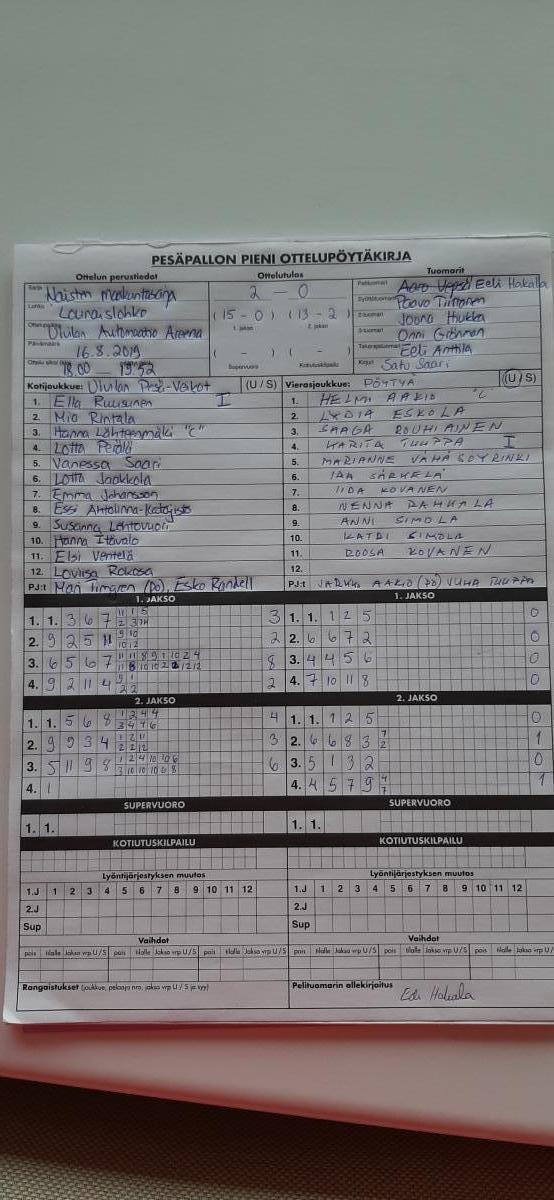 PESÄPALLON PIENI OTTELUPÖYTÄKIRJA
Ottelun perustiedot Ottelutulos Tuomarit
Sarja Naisten Maakuntasarja
Lohko Lounaislohko
Ulvilan Automaatio Areena
Päivämäärä 16.8.2019
18.00 — 19.52
2 — 0
(15 - 0) (13 - 2)
1. jakso 2. jakso
( - ) ( - )
Supervuoro Kotiutuskilpailu
Pelituomari Eeli Hakala
Syöttötuomari Paavo Tiittanen
2-tuomari Joona Hiukka
3-tuomari Onni Grönman
Takarajatuomari Eeli Anttila
Kirjuri Satu Saari
Kotijoukkue: Ulvilan Pesä-Veikot (U / S)
1. Ella Ruusunen I
2. Mia Rintala
3. Hanna Lähteenmäki "C"
4. Lotta Perälä
5. Vanessa Saari
6. Lotta Jaakkola
7. Emma Johansson
8. Essi Anttolinna-Katajisto
9. Susanna Lehtovuori
10. Hanna Itävalo
11. Elsi Ventelä
12. Loviisa Rokosa
PJ:t Mari Timgren (PO), Esko Randell
Vierasjoukkue: PÖYTYÄ (U / S)
1. HELMI AAKIO "C"
2. LYDIA ESKOLA
3. SAAGA ROUHIAINEN
4. KARITA TUUPPA I
5. MARIANNE VÄHÄ SÖYRINKI
6. IDA SÄRKELÄ
7. IIDA KOVANEN
8. NENNA RAHKALA
9. ANNI SIMOLA
10. KATRI SIMOLA
11. ROOSA KOVANEN
12.
PJ:t JARKKO AAKIO (PO) JUHA TUUPPA
1. JAKSO
1. 1. 3 6 7 3
2. 9 2 5 11 9 10 10 12 2
3. 6 5 6 7 8
4. 9 2 11 4 9 1 2 2 2
2. JAKSO
1. 1 5 6 8 1 2 4 4 3 4 7 6 4
2. 9 9 3 4 1 2 11 2 2 12 3
3. 5 11 9 8 1 2 4 10 10 6 3 10 10 10 6 8 6
4. 1
SUPERVUORO
1. 1.
KOTIUTUSKILPAILU
1. JAKSO
1. 1. 1 2 5 0
2. 6 6 7 2 0
3. 4 4 5 6 0
4. 7 10 11 8 0
2. JAKSO
1. 1. 1 2 5 0
2. 6 6 8 3 7 2 1
3. 5 1 3 2 0
4. 4 5 7 9 4 7 1
SUPERVUORO
1. 1.
KOTIUTUSKILPAILU
Lyöntijärjestyksen muutos
1.J 1 2 3 4 5 6 7 8 9 10 11 12
2.J
Sup
Vaihdot
pois tilalle Jakso vrp U / S pois tilalle Jakso vrp U / S
Rangaistukset (joukkue, pelaaja nro, jakso vrp U / S ja syy)
Lyöntijärjestyksen muutos
1.J 1 2 3 4 5 6 7 8 9 10 11 12
2.J
Sup
Vaihdot
pois tilalle Jakso vrp U / S pois tilalle Jakso vrp U / S
Pelituomarin allekirjoitus
Eeli Hakala